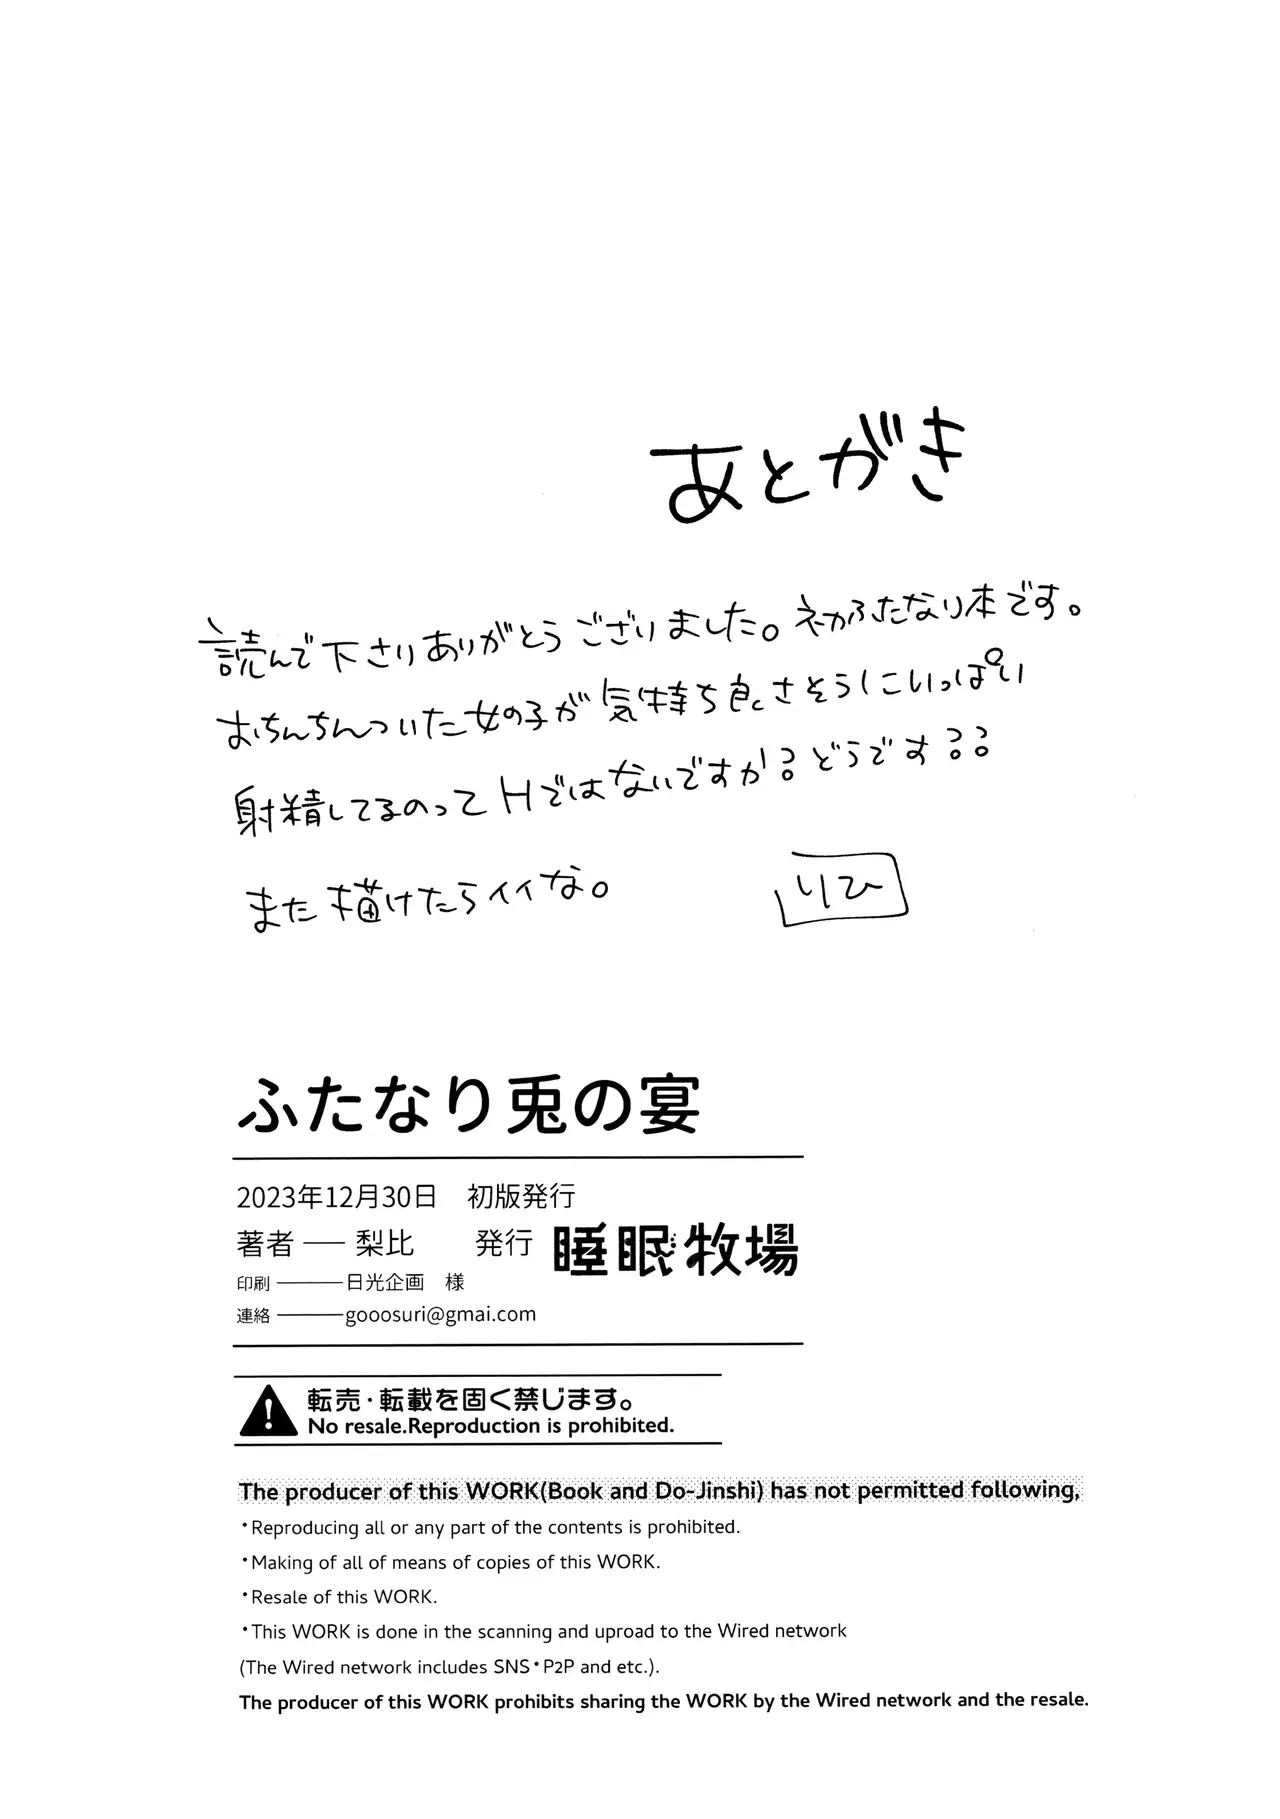 あとがき
読んで下さりありがとうございました。初ふたなり本です。
おちんちんついた女の子が気持ち良さそうにいっぱい
射精してるのってHではないですか?どうです??
また描けたらイイな。
りひ
ふたなり兎の宴
2023年12月30日 初版発行
著者 ── 梨比 発行 睡眠牧場
印刷 ──── 日光企画 様
連絡 ──── gooosuri@gmai.com
転売・転載を固く禁じます。
No resale.Reproduction is prohibited.
The producer of this WORK(Book and Do-Jinshi) has not permitted following,
・Reproducing all or any part of the contents is prohibited.
・Making of all of means of copies of this WORK.
・Resale of this WORK.
・This WORK is done in the scanning and uproad to the Wired network
(The Wired network includes SNS・P2P and etc.).
The producer of this WORK prohibits sharing the WORK by the Wired network and the resale.